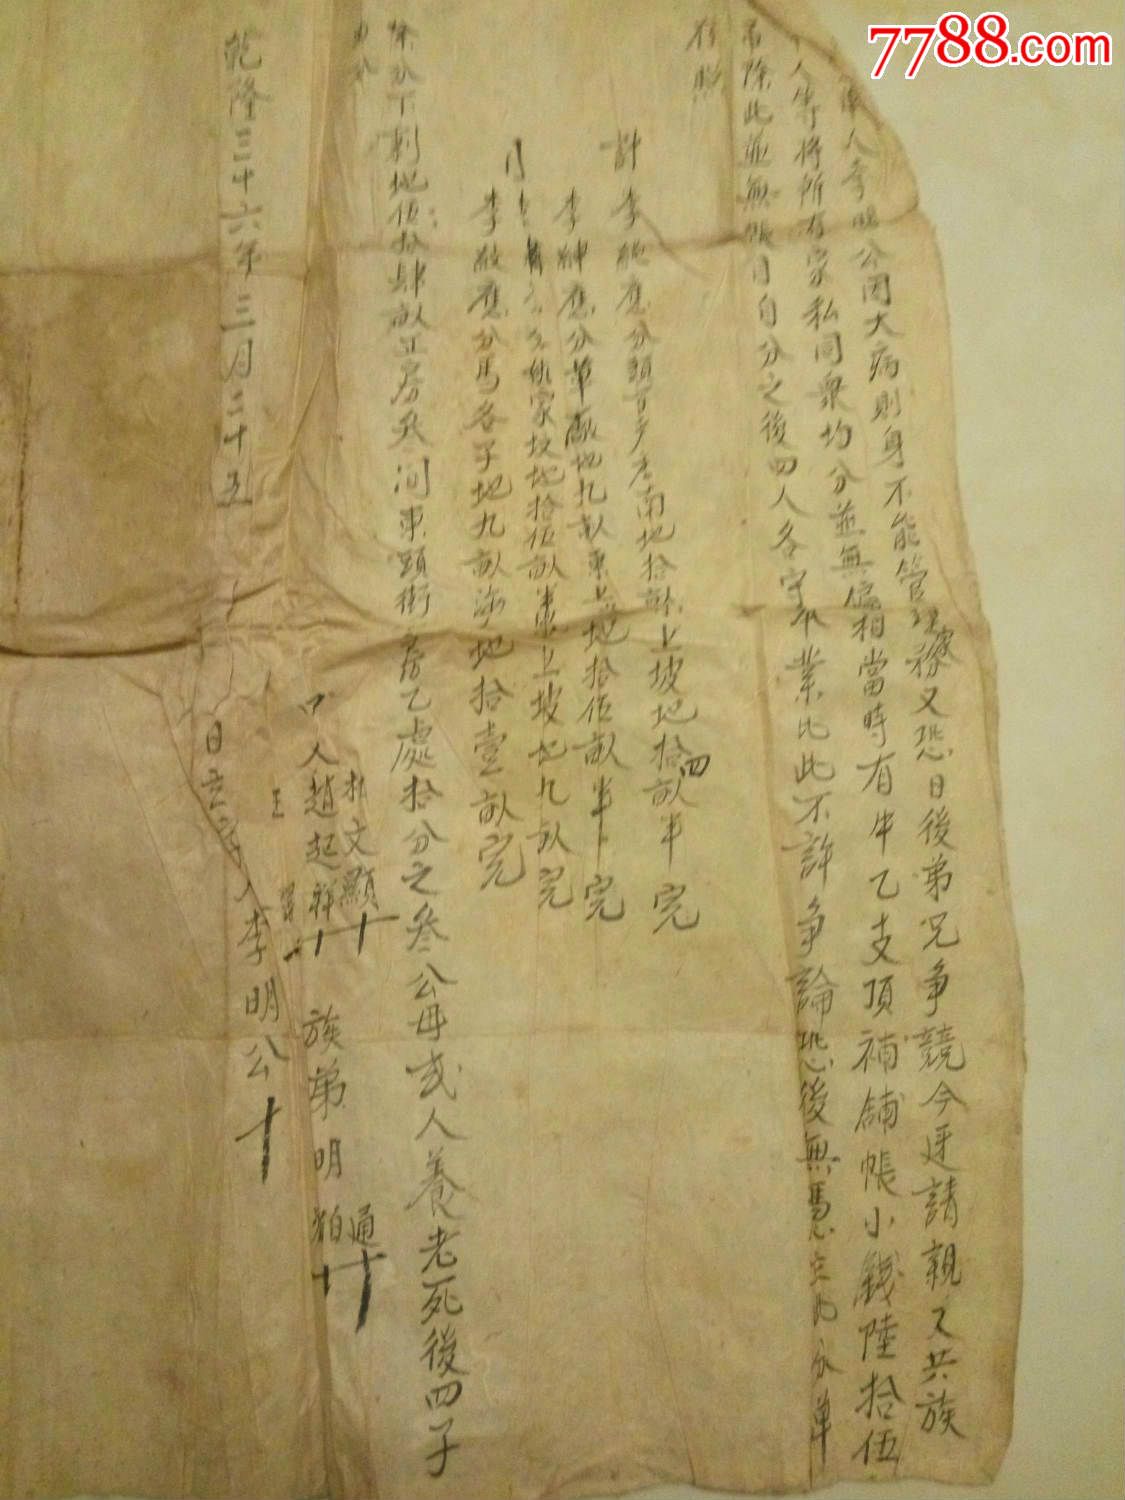 7788.com
人李明公因大病則身不能管理家務又恐日後弟兄爭競今逐請親友共族
人等将所有家私同衆均分並無偏相當時有牛乙支頂補舖帳小錢陸拾伍
吊除此並無帳目自分之後四人各守本業比此不許爭論恐後無憑立此分單
存照
計李聰應分頭南地拾畝上坡地拾四畝半完
李紳應分草厰地九畝東上地拾伍畝半完
家坟地拾伍畝半東上坡地九畝完
李敬應分馬各子地九畝海地拾壹畝完
除分下剩地伍拾肆畝正房叁间東頭街房乙處拾分之叁公母弍人養老死後四子
均分
中人趙起祥 文顯 族弟明 通
王
乾隆三十六年三月二十五日立字人李明公十